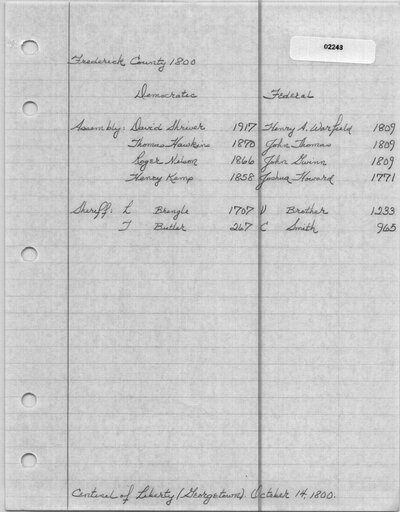 02248
Frederick County 1800
Democratic Federal
Assembly: David Shriver 1917 Henry A. Warfield 1809
Thomas Hawkins 1870 John Thomas 1809
Roger Nelson 1866 John Gwinn 1809
Henry Kemp 1858 Joshua Howard 1771
Sheriff: L Brengle 1707 V Brother 1233
T Butler 267 C Smith 965
Centinel of Liberty (Georgetown). October 14, 1800.